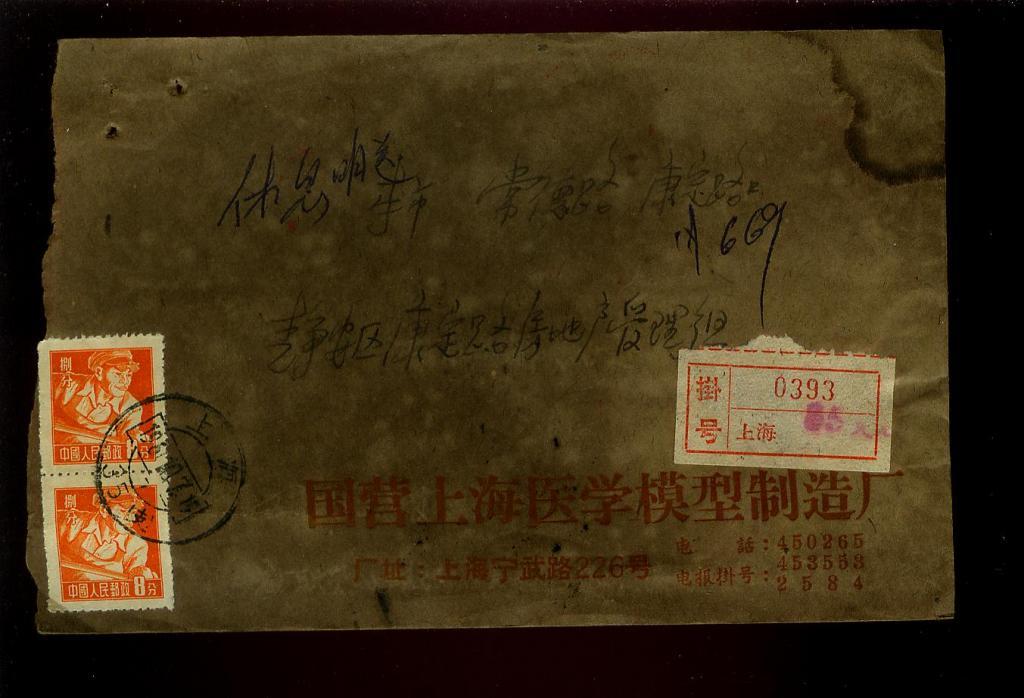 休息 明送
本市 常德路 康定路口
川669
静安区康定路房地产管理组
掛号 0393
上海
捌分
中國人民郵政 8分
捌分
中國人民郵政 8分
上海
国营上海医学模型制造厂
厂址：上海宁武路226号
电 話：450265
453553
电报掛号：2584